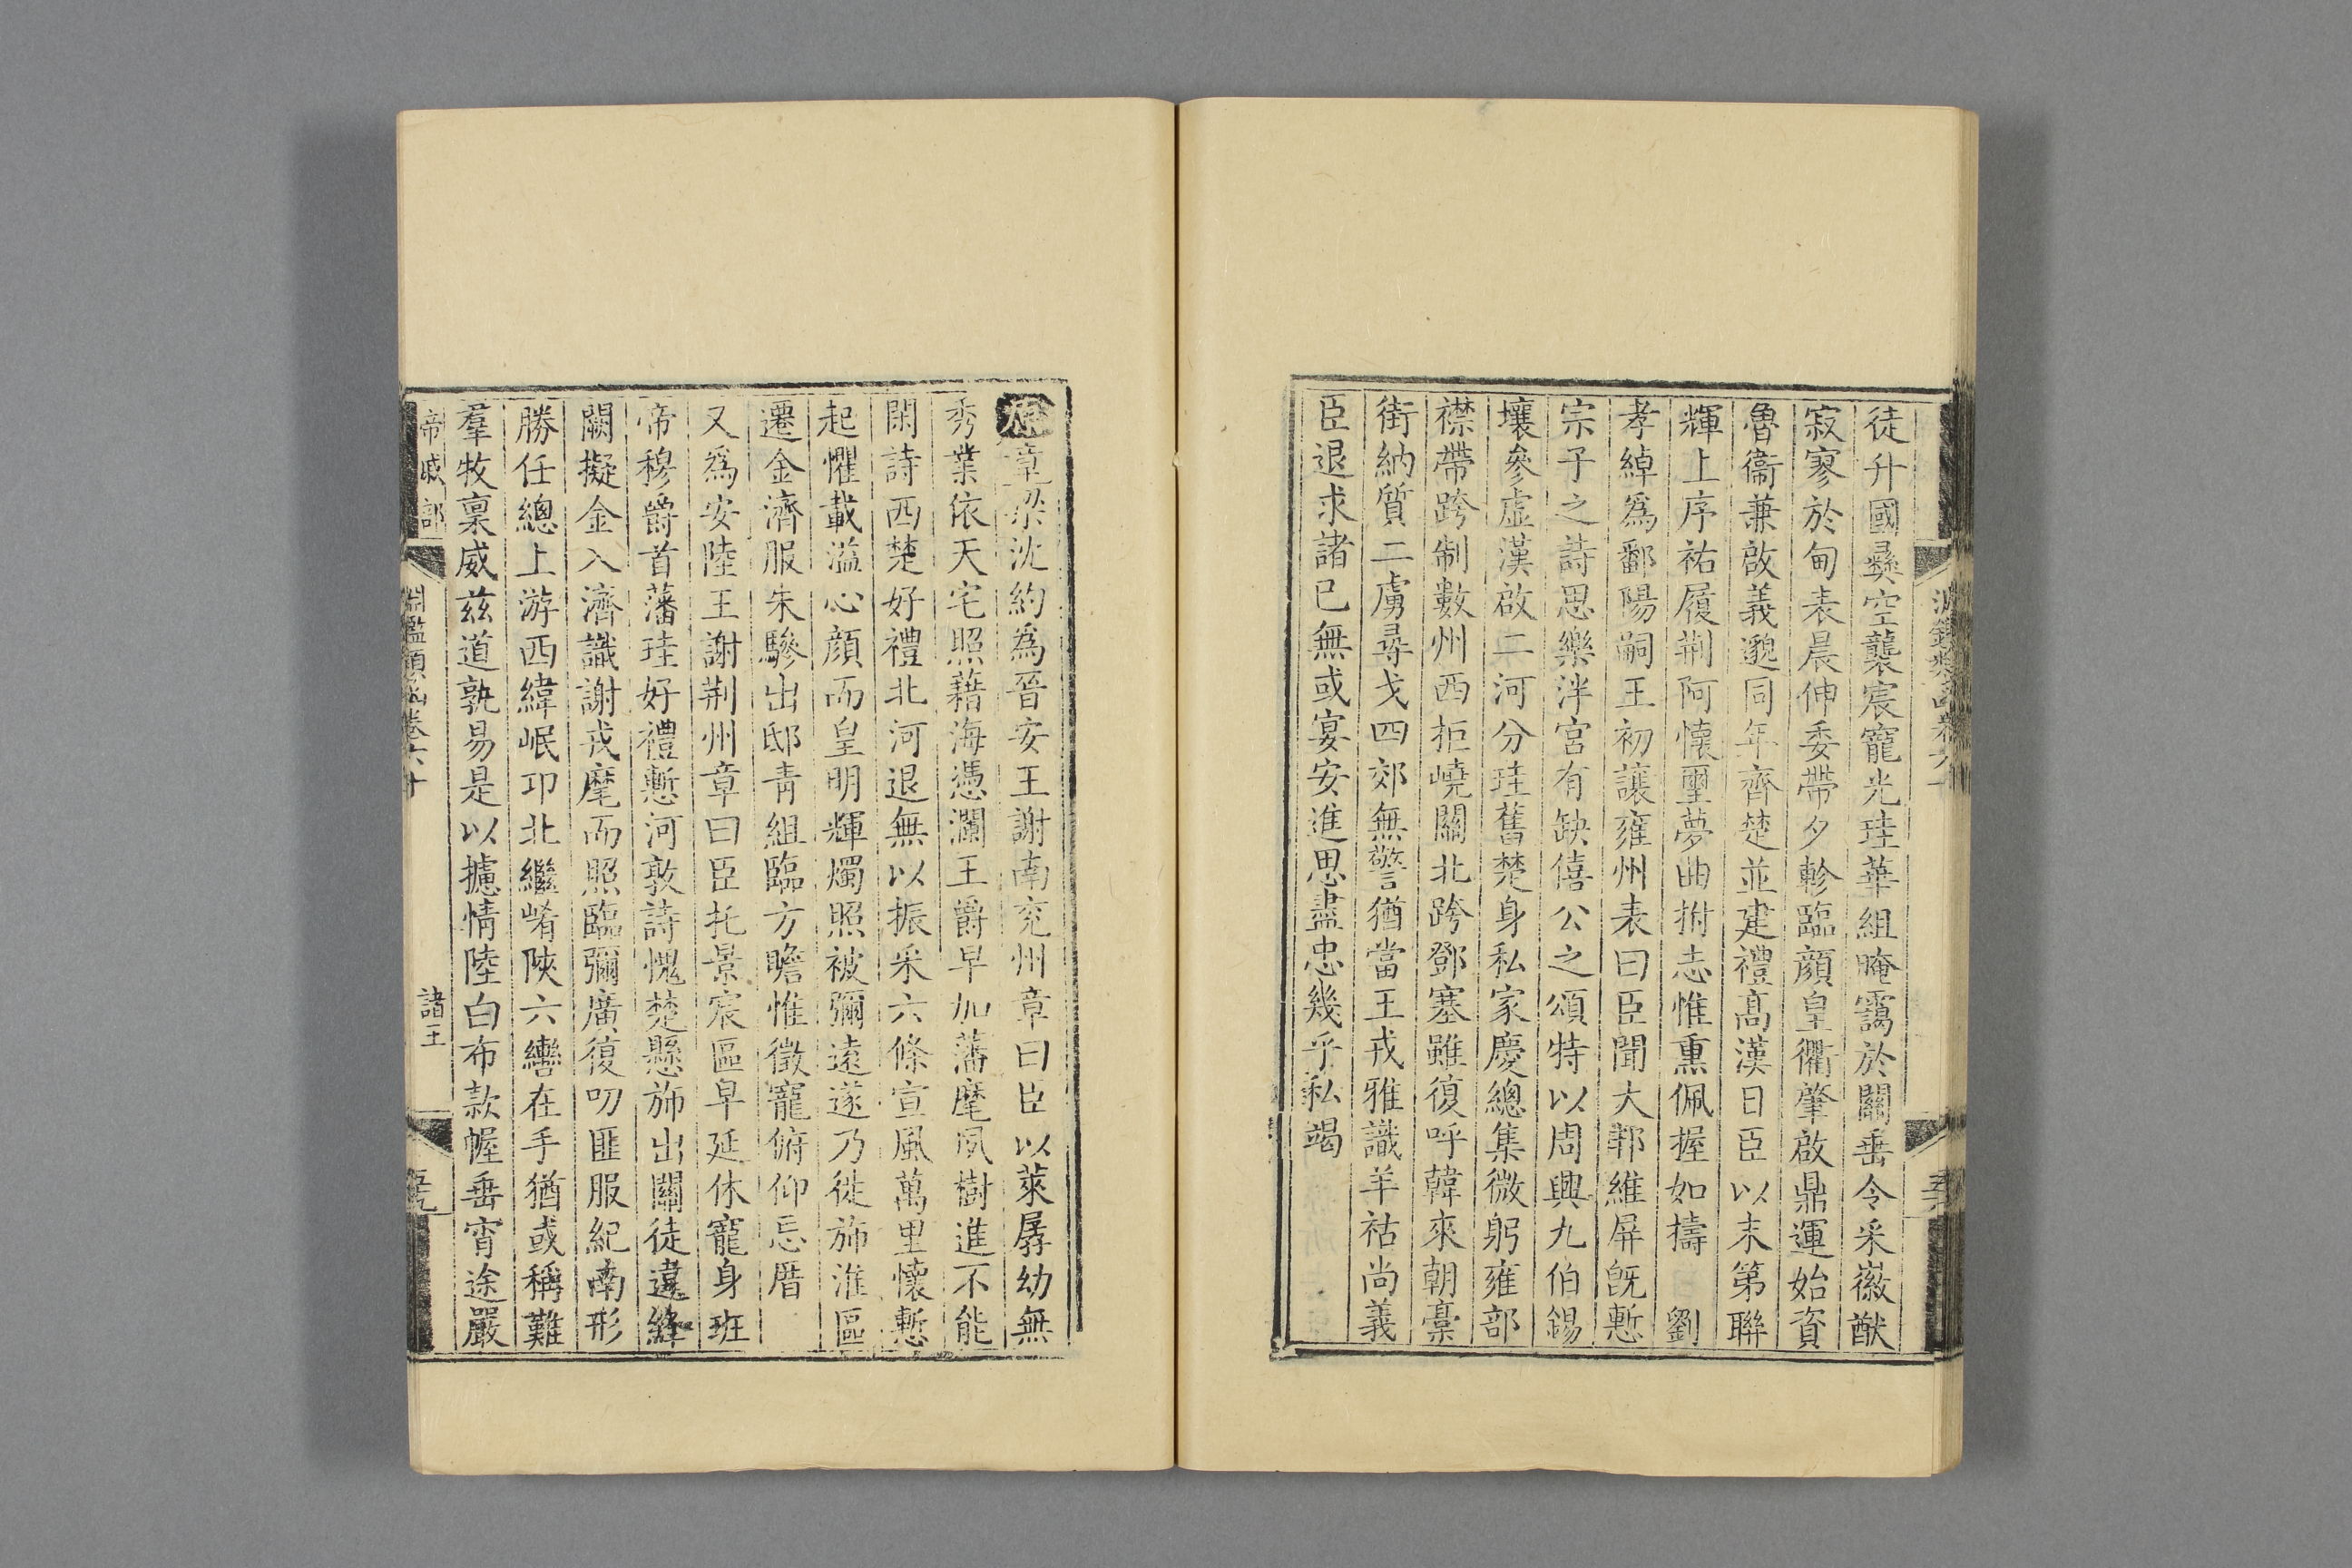 徒升國彝空襲宸寵光珪華組晻靄於關垂令采徽猷
寂寥於甸表晨伸委帶夕軫臨顏皇衢肇啟鼎運始資
魯衞兼啟義邈同年齊楚並建禮髙漢日臣以末第聯
輝上序祐履荆阿懷璽夢曲拊志惟熏佩握如擣 劉
孝綽爲鄱陽嗣王初讓雍州表曰臣聞大邦維屏旣慙
宗子之詩思樂泮宮有缺僖公之頌特以周興九伯錫
壤參虛漢啟二河分珪舊楚身私家慶總集微躬雍部
襟帶跨制數州西拒嶢關北跨鄧塞雖復呼韓來朝稾
街納質二虜尋戈四郊無警猶當王戎雅識羊祜尚義
臣退求諸已無或宴安進思盡忠幾乎私竭
章梁沈約爲晉安王謝南兖州章曰臣以萊孱幼無
秀業依天宅照藉海憑瀾王爵早加藩麾夙樹進不能
閑詩西楚好禮北河退無以振采六條宣風萬里懷慙
起懼載溢心顏而皇明輝燭照被彌遠遂乃徙斾淮區
遷金濟服朱驂出邸青組臨方瞻惟徵寵俯仰忘厝
又爲安陸王謝荆州章曰臣托景宸區早延休寵身班
帝穆爵首藩珪好禮慙河敦詩愧楚懸斾出關徒違絳
闕擬金入濟識謝戎麾而照臨彌廣復叨匪服紀南形
勝任總上游西緯岷卭北繼崤陝六轡在手猶或稱難
羣牧稟威茲道孰易是以攄情陸白布款幄垂宵途嚴
帝戚部 淵鑑類函卷六十 諸王